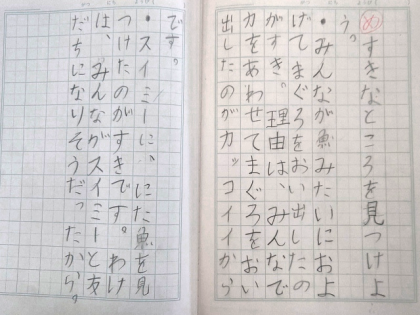 めすきなところを見つけよ
う。
・みんなが魚みたいにおよ
げてまぐろをおい出したの
がすき。理由は、みんなで
力をあわせてまぐろをおい
出したのがカッコイイから
です。
・スイミーに、にた魚を見
つけたのがすきです。わけ
は、みんながスイミーと友
だちになりそうだったから。